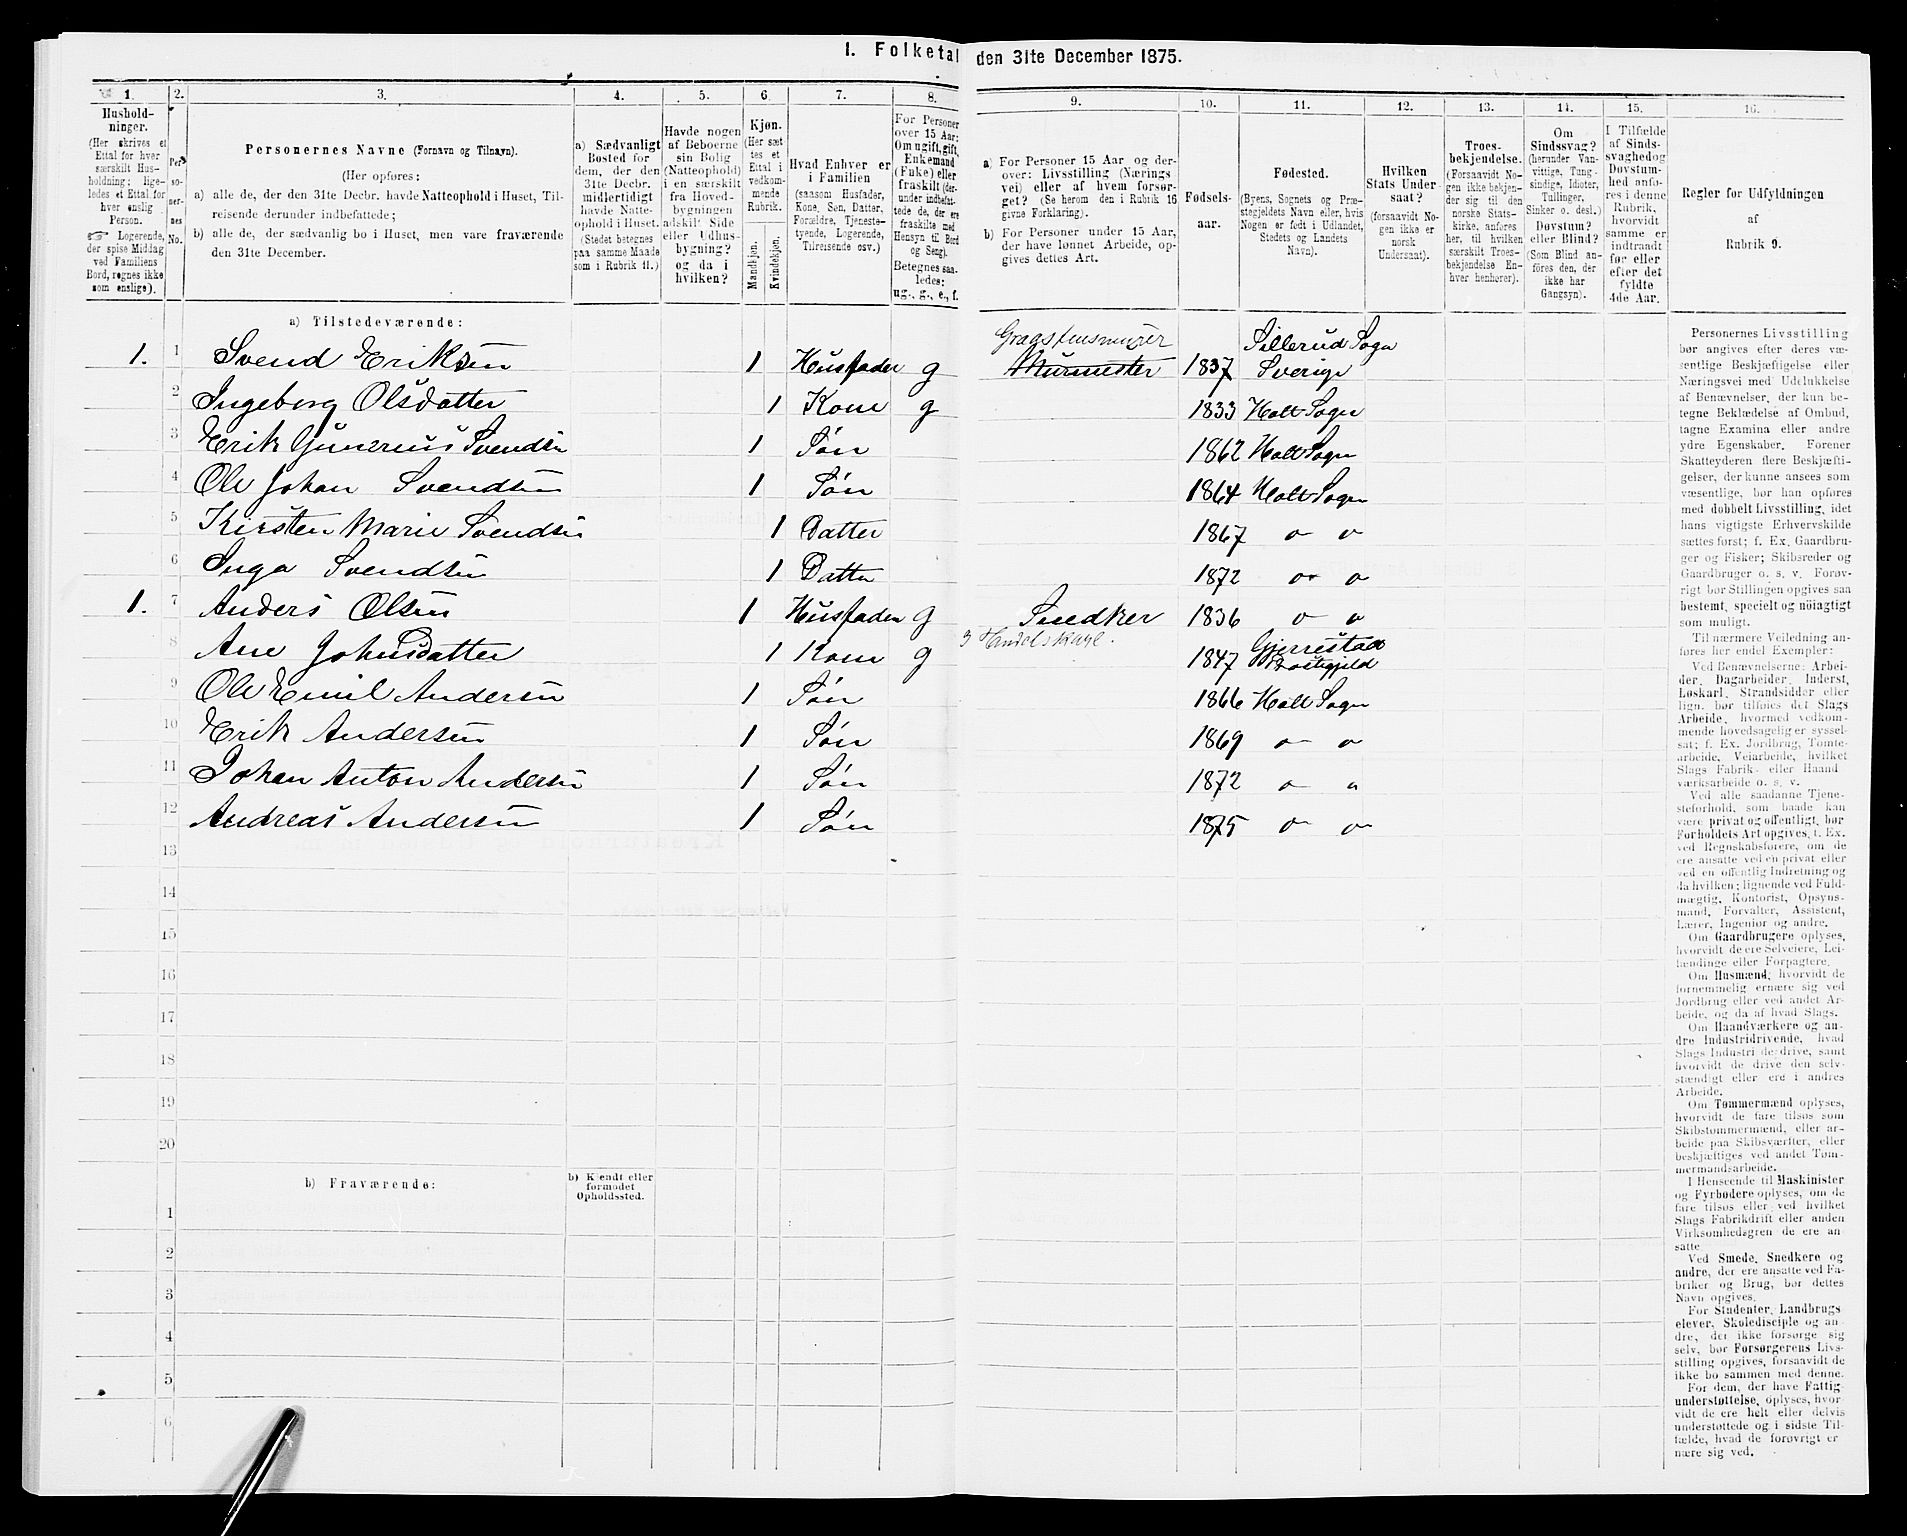 I. Folketal den 31te December 1875.
1. 2. 3. 4. 5. 6. 7. 8. 9. 10. 11. 12. 13. 14. 15. 16.
Hushold-
ninger.
(Her skrives et
Ettal for hver
særskilt Hus-
holdning; lige-
ledes et Ettal for
hver enslig
Person.
☞ Logerende,
der spise Middag
ved Familiens
Bord, regnes ikke
som enslige).
Per-
so-
ner-
nes
No.
Personernes Navne (Fornavn og Tilnavn).
(Her opføres:
a) alle de, der den 31te Decbr. havde Natteophold i Huset, Til-
reisende derunder indbefattede;
b) alle de, der sædvanlig bo i Huset, men vare fraværende
den 31te December.
a) Sædvanligt
Bosted for
dem, der den
31te Decbr.
midlertidigt
havde Natte-
ophold i Huset.
(Stedet betegnes
paa samme Maade
som i Rubrik 11.)
Havde nogen
af Beboerne
sin Bolig
(Natteophold)
i en særskilt
fra Hoved-
bygningen
adskilt Side
eller Udhus-
bygning?
og da i
hvilken?
Kjøn.
(Her sæt
tes et
Ettal i
vedkom-
mende
Rubrik.
Mandkjøn.
Kvindekjøn.
Hvad Enhver er
i Familien
(saasom Husfader,
Kone, Søn, Datter,
Forældre, Tjeneste-
tyende, Logerende,
Tilreisende osv.)
For Personer
over 15 Aar:
Om ugift, gift,
Enkemand
(Enke) eller
fraskilt (der-
under indbefat-
tede de, der ere
fraskilte med
Hensyn til Bord
og Seng).
Betegnes saa-
ledes:
ug., g., e., f.
a) For Personer 15 Aar og der-
over: Livsstilling (Nærings
vei) eller af hvem forsør-
get? (Se herom den i Rubrik 16
givne Forklaring.)
b) For Personer under 15 Aar,
der have lønnet Arbeide, op-
gives dettes Art.
Fødsels-
aar.
Fødested.
(Byens, Sognets og Præ-
stegjeldets Navn eller, hvis
Nogen er født i Udlandet,
Stedets og Landets
Navn).
Hvilken
Stats Under-
saat?
(forsaavidt No-
gen ikke er
norsk
Undersaat).
Troes-
bekjendelse.
(Forsaavidt No-
gen ikke bekjen-
der sig til den
norske Stats-
kirke, anføres
her, til hvilken
særskilt Troes-
bekjendelse En-
hver henhører).
Om
Sindssvag?
(herunder Van-
vittige, Tung-
sindige, Idioter,
Tullinger,
Sinker o. desl.)
Døvstum?
eller Blind?
(Som Blind an-
føres den, der
ikke har
Gangsyn).
I Tilfælde
af Sinds-
svaghed og
Døvstum-
hed anfø-
res i denne
Rubrik,
hvorvidt
samme er
indtraadt
før eller
efter det
fyldte
4de Aar.
Regler for Udfyldningen
af
Rubrik 9.
a) Tilstedeværende:
1. 1 Svend Eriksen 1 Husfader g Graastensmurer Murmester 1837 Sillerud Sogn Sverige
2 Ingeborg Olsdatter 1 Kone g 1833 Holt Sogn
3 Erik Gunerius Svendsen 1 Søn 1862 Holt Sogn
4 Ole Johan Svendsen 1 Søn 1864 Holt Sogn
5 Kirsten Marie Svendsen 1 Datter 1867 " "
6 Inga Svendsen 1 Datter 1872 " "
1. 7 Anders Olsen 1 Husfader g Snedker 1836 " "
8 Ane Johnsdatter 1 Kone g 1847 Gjerrestad Præstegjeld
9 Ole Emil Andersen 1 Søn 1866 Holt Sogn
10 Erik Andersen 1 Søn 1869 " "
11 Johan Anton Andersen 1 Søn 1872 " "
12 Andreas Andersen 1 Søn 1875 " "
13
14
15
16
17
18
19
20
b) Fraværende:
b) Kjendt eller
formodet
Opholdssted.
1
2
3
4
5
6
Personernes Livsstilling
bør angives efter deres væ-
sentlige Beskjæftigelse eller
Næringsvei med Udelukkelse
af Benævnelser, der kun be-
tegne Beklædelse af Ombud,
tagne Examina eller andre
ydre Egenskaber. Forener
Skatteyderen flere Beskjæfti-
gelser, der kunne ansees som
væsentlige, bør han opføres
med dobbelt Livsstilling, idet
hans vigtigste Erhvervskilde
sættes først; f. Ex. Gaardbru-
ger og Fisker; Skibsreder og
Gaardbruger o. s. v. Forøv-
rigt bør Stillingen opgives saa
bestemt, specielt og nøiagtigt
som muligt.
Til nærmere Veiledning an-
føres her endel Exempler:
Ved Benævnelserne: Arbei-
der, Dagarbeider, Inderst,
Løskarl, Strandsidder eller
lign. bør tilføies det Slags
Arbeide, hvormed vedkom-
mende hovedsagelig er syssel-
sat; f. Ex. Jordbrug, Tomte-
arbeide, Veiarbeide, hvilket
Slags Fabrik- eller Haand
værksarbeide o. s. v.
Ved alle saadanne Tjene-
steforhold, som baade kan
være privat og offentligt, bør
Forholdets Art opgives, t. Ex.
ved Regnskabsførere, om de
ere ansatte ved en privat eller
ved en offentlig Indretning og
da hvilken; lignende ved Fuld-
mægtig, Kontorist, Opsyns-
mand, Forvalter, Assistent,
Lærer, Ingeniør og andre.
Om Gaardbrugere oplyses,
hvorvidt de ere Selveiere, Lei-
lændinge eller Forpagtere.
Om Husmænd, hvorvidt de
fornemmelig ernære sig ved
Jordbrug eller ved andet Ar-
beide, og da af hvad Slags.
Om Haandværkere og an-
dre Industridrivende, hvad
Slags Industri de drive, samt
hvorvidt de drive den selv-
stændigt eller ere i andres
Arbeide.
Om Tømmermænd oplyses,
hvorvidt de fare tilsøs som
Skibstømmermænd, eller ar-
beide paa Skibsværfter, eller
beskjæftiges ved andet Tøm-
mermandsarbeide.
I Henseende til Maskinister
og Fyrbødere oplyses, om de
fare tilsøs eller ved hvilket
Slags Fabrikdrift eller anden
Virksomhedsgren de ere an-
satte
Ved Smede, Snedkere og
andre, der ere ansatte ved Fa-
briker og Brug, bør dettes
Navn opgives.
For Studenter, Landbrugs
elever, Skoledisciple og an-
dre, der ikke forsørge sig
selv, bør Forsørgerens Livs-
stilling opgives, forsaavidt de
ikke bo sammen med denne.
For dem, der have Fattig-
understøttelse, oplyses, hvor-
vidt de ere helt eller delvis
understøttede og i sidste Til-
fælde, hvad de forøvrigt er-
nære sig ved.